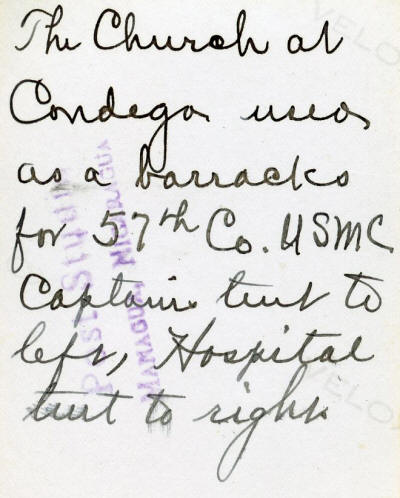 The Church at
Condega used
as a barracks
for 57th Co. USMC
Captains tent to
left, Hospital
tent to right
MANAGUA NICARAGUA
VELO
VELO